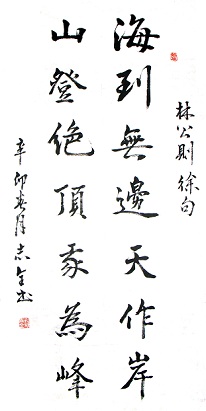 林公則徐句
海到無邊天作岸
山登絕頂我為峰
辛卯春月志金书